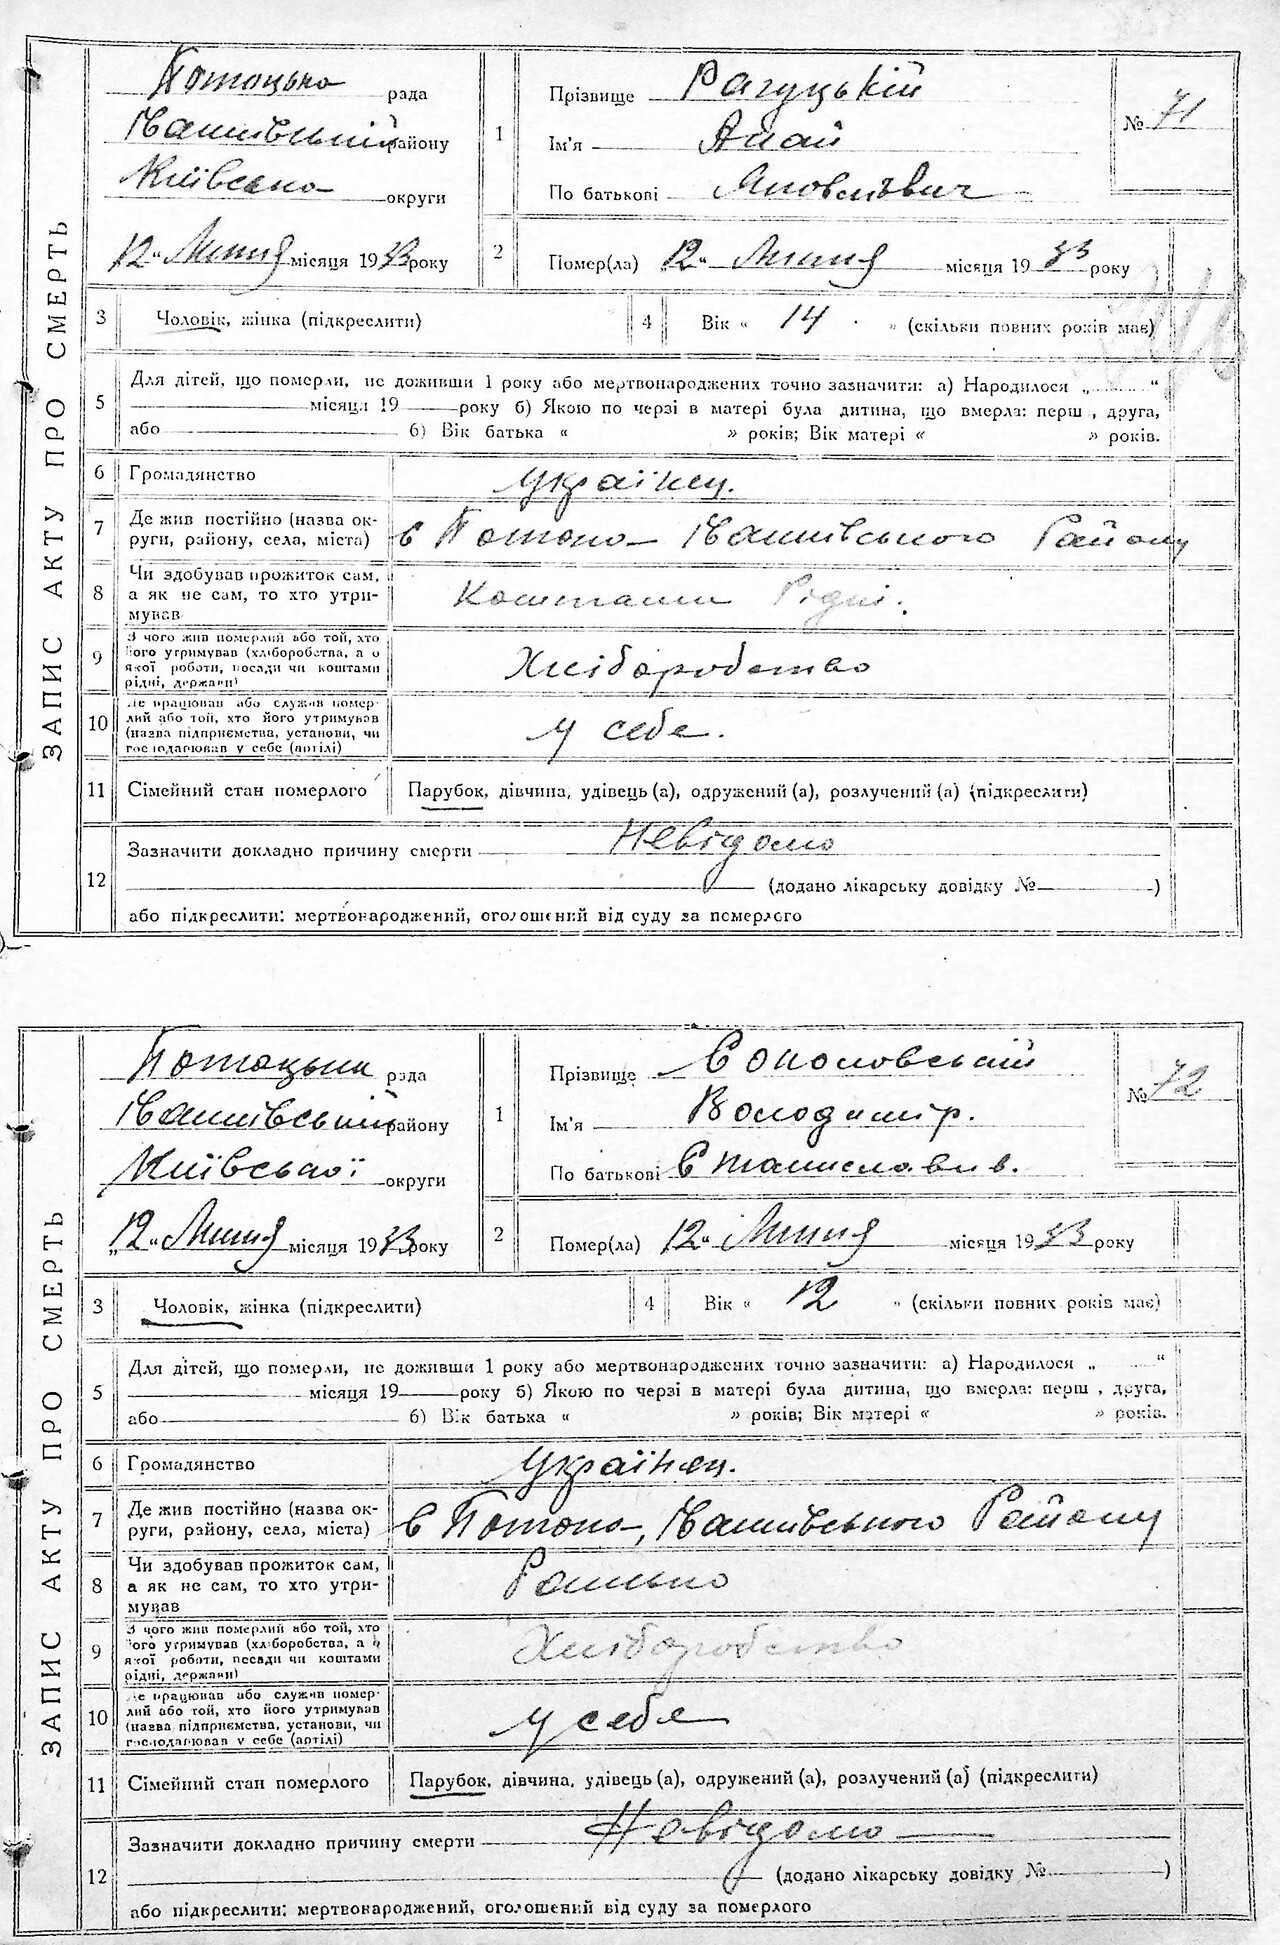 ЗАПИС АКТУ ПРО СМЕРТЬ
Потоцька рада
району
округи
12 " Липня місяця 1933 року
1
Прізвище Рагуцькій
Ім'я
По батькові
№ 71
2
Помер(ла) 12 " Липня місяця 1933 року
3 Чоловік, жінка (підкреслити)
4 Вік « 14 » (скільки повних років має)
5
Для дітей, що померли, не доживши 1 року або мертвонароджених точно зазначити: а) Народилося „ “
місяця 19 року б) Якою по черзі в матері була дитина, що вмерла: перш , друга,
або б) Вік батька « » років; Вік матері « » років.
6 Громадянство Українец.
7
Де жив постійно (назва ок-
руги, району, села, міста)
в Потоко Району
8
Чи здобував прожиток сам,
а як не сам, то хто утри-
мував
Коштами Рідні.
9
З чого жив померлий або той, хто
його утримував (хліборобства, а о
якої роботи, посади чи коштами
рідні, держави)
Хліборобство
10
Де працював або служив помер-
лий або той, хто його утримував
(назва підприємства, установи, чи
господарював у себе (артілі)
У себе.
11 Сімейний стан померлого Парубок, дівчина, удівець (а), одружений (а), розлучений (а) (підкреслити)
12
Зазначити докладно причину смерти Невідомо
(додано лікарську довідку № )
або підкреслити: мертвонароджений, оголошений від суду за померлого
ЗАПИС АКТУ ПРО СМЕРТЬ
Потоцька рада
району
Київської округи
„12 " Липня місяця 1933 року
1
Прізвище Соколовській
Ім'я Володимір.
По батькові Станиславив.
№ 72
2
Помер(ла) 12 " Липня місяця 1933 року
3 Чоловік, жінка (підкреслити)
4 Вік « 12 » (скільки повних років має)
5
Для дітей, що померли, не доживши 1 року або мертвонароджених точно зазначити: а) Народилося „ “
місяця 19 року б) Якою по черзі в матері була дитина, що вмерла: перш , друга,
або б) Вік батька « » років; Вік матері « » років.
6 Громадянство Українец.
7
Де жив постійно (назва ок-
руги, району, села, міста)
в Потоко, Району
8
Чи здобував прожиток сам,
а як не сам, то хто утри-
мував
9
З чого жив померлий або той, хто
його утримував (хліборобства, а о
якої роботи, посади чи коштами
рідні, держави)
Хліборобство
10
Де працював або служив помер-
лий або той, хто його утримував
(назва підприємства, установи, чи
господарював у себе (артілі)
У себе
11 Сімейний стан померлого Парубок, дівчина, удівець (а), одружений (а), розлучений (а) (підкреслити)
12
Зазначити докладно причину смерти Невідомо
(додано лікарську довідку № )
або підкреслити: мертвонароджений, оголошений від суду за померлого